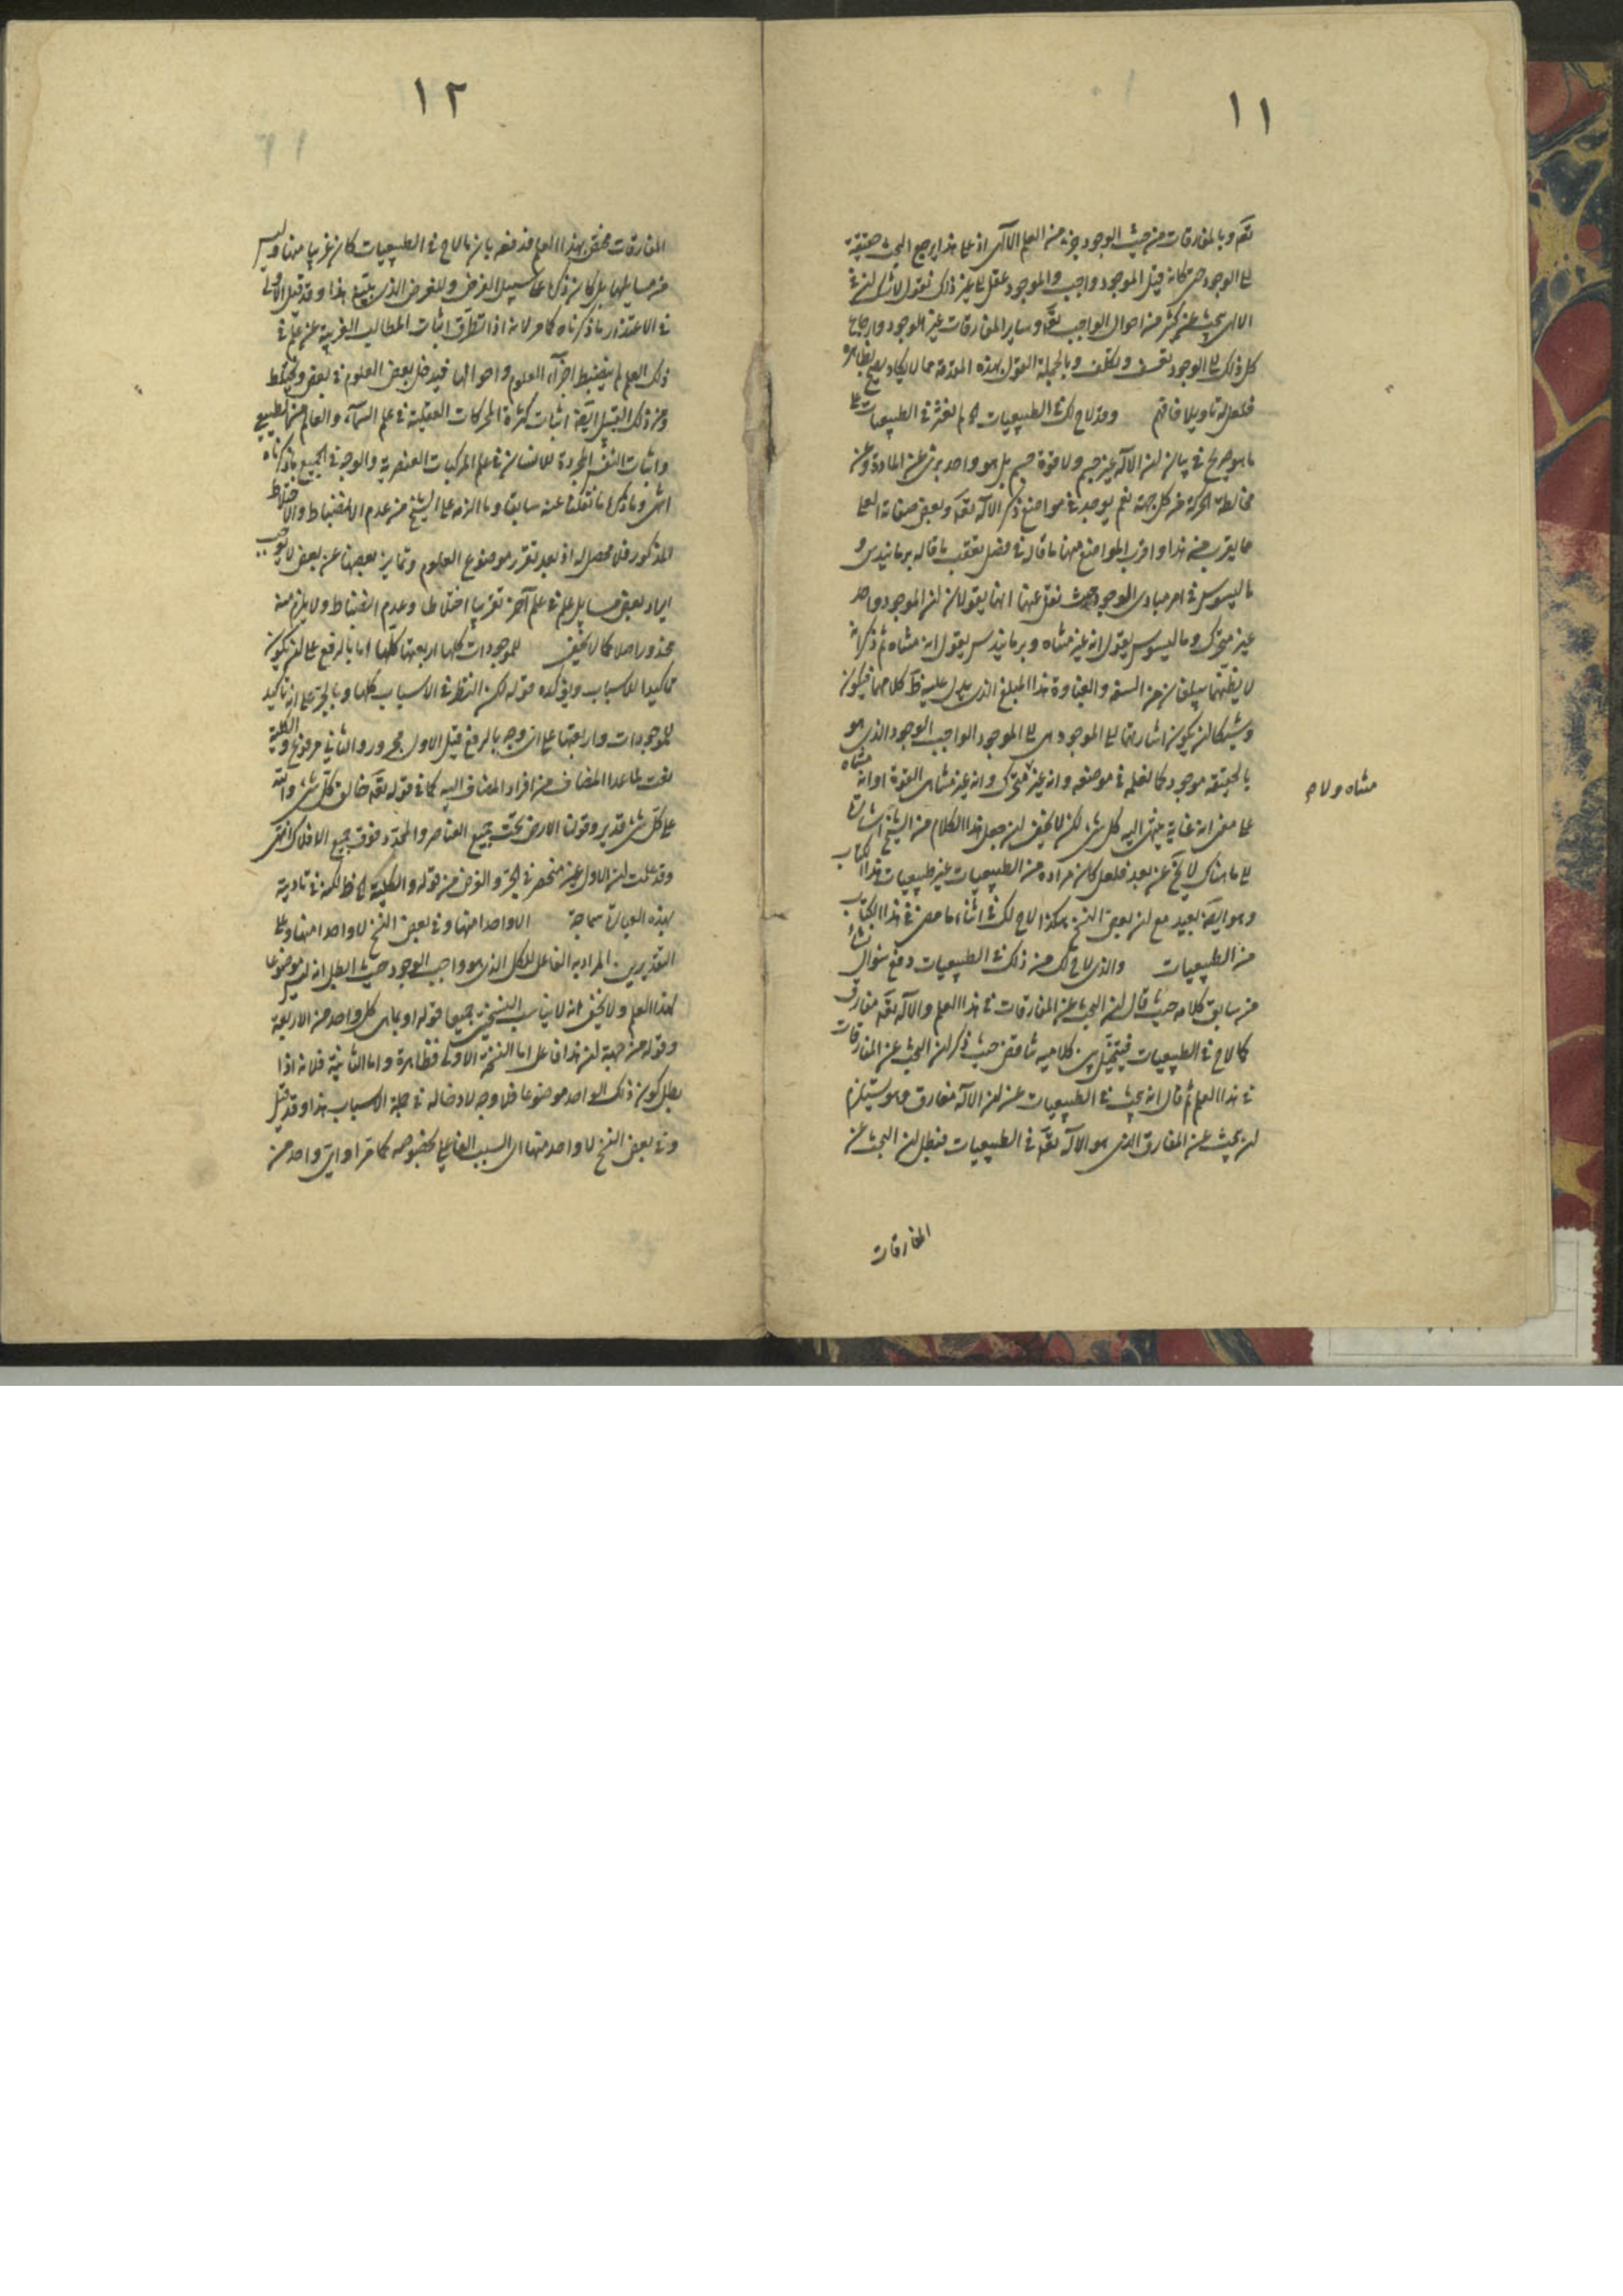 ١١
تقم وبالمفارقات من حيث الوجود جزء من العلم الالهى اذ على هذا يرجع البحث حقيقة
الى الوجود حتى كانه قيل الموجود واجب والموجود عقل الى غير ذلك نقول لا شك ان فى
الالهى يبحث عن كثير من احوال الواجب تعالى وساير المفارقات غير الوجود وارجاع
كل ذلك الى الوجود تعسف وتكلف وبالجملة القول بهذه المقدمة مما لا يكاد يصح بظاهره
فلعل له تاويلا فافهم وقد لاح لك فى الطبيعيات اه لم نعثر فى الطبيعيات على
ما هو صريح فى بيان ان الاله غير جسم ولا قوة جسم بل هو واحد برئ عن المادة وعن
مخالطة الحركة من كل جهة نعم يوجد فى مواضع ذكر الاله تقه وبعض صفاته العلى
ما يقرب من هذا واقرب المواضع منها ما قال فى فصل تعقب ما قاله برمانيدس و
ماليسوس فى امر مبادى الوجود حيث نقل عنها انهما يقولان ان الموجود واحد
غير متحرك وماليسوس يقول انه غير متناه وبرمانيدس يقول انه متناه ثم ذكر انه
لا يظنهما يبلغان من السفه والغباوة هذا المبلغ الذى يدل عليه ظ كلامهما فيكون
ويشبه ان يكون اشارتهما الى الموجود هى الى الموجود الواجب الوجود الذى هو
بالحقيقة موجود كما نعلمه فى موضعه وانه غير متحرك وانه غير متناهى القوة او انه متناه
على معنى انه غاية ينتهى اليه كل شئ لكن لا يخفى ان جعل هذا الكلام من الشيخ اشارة
الى ما هناك لا يخ عن بعد فلعل كان مراده من الطبيعيات غير طبيعيات هذا الكتاب
وهو ايضا بعيد مع ان بعض النسخ هكذا لاح لك فى اثناء ما مضى فى هذا الكتاب
من الطبيعيات والذى لاح لك من ذلك فى الطبيعيات دفع سؤال نشأ
من سابق كلامه حيث قال ان البحث عن المفارقات فى هذا العلم والاله تقه مفارق
كما لاح فى الطبيعيات فيتخيل بين كلاميه تناقض حيث ذكر ان البحث عن المفارقات
فى هذا العلم ثم قال انه يبحث فى الطبيعيات عن ان الاله مفارق وهو يستلزم
ان يبحث عن المفارق الذى هو الاله تقه فى الطبيعيات فبطل ان البحث عن
المفارقات
متناه ولا م
١٢
المفارقات مختص بهذا العلم فدفعه بان ما لاح فى الطبيعيات كان غريبا منها وليس
من مسايلها بل كان ذكره على سبيل العرض وللغرض الذى يتبع هذا وقد قيل الاولى
فى الاعتذار ما ذكرناه كما مر لانه اذا تطرق اثبات المطالب الغريبة عن علم فى
ذلك العلم لم ينضبط اجزاء العلوم واحوالها فيدخل بعض العلوم فى بعض ويختلط
ومن ذلك القبيل ايضا اثبات كثرة المحركات العقلية فى علم السماء والعالم من الطبيعى
واثبات النفس المجردة للانسان فى علم المركبات العنصرية والوجه فى الجميع ما ذكرناه
انتهى وما ذكره ما نقلنا عنه سابقا وما الزمه على الشيخ من عدم الانضباط والاختلاط
المذكور فلا محصل له اذ بعد تقرر موضوع العلوم وتمايز بعضها عن بعض لا يوجب
ايراد بعض مسايل علم فى علم آخر تقريبا اختلاطا وعدم انضباط ولا يلزم منه
محذور اصلا كما لا يخفى للموجودات كلها اربعتها كلها اما بالرفع على ان يكون
تاكيدا للاسباب ويؤكده قوله لكن النظر فى الاسباب كلها وبالجر على انه تاكيد
للموجودات واربعتها على ان وجه بالرفع قيل الاول مجرور والثانى مرفوع والكلية
نعت لما عدا المضاف من افراد المضاف اليه كما فى قوله تقه خالق كل شئ والله
على كل شئ قدير وقولنا الارض تحت جميع العناصر والمحدد فوق جميع الافلاك انتهى
وقد علمت ان الاول غير منحصر فى الجر والغرض من قوله والكلية اه ظ لكن فى تاديته
بهذه العبارة سماجة الا واحدا منها وفى بعض النسخ لا واحدا منها وعلى
التقديرين المراد به الفاعل للكل الذى هو واجب الوجود حيث ابطل انه ليس موضوعا
لهذا العلم ولا يخفى انه لا يناسب النسختين جميعا قوله او بما هى كل واحد من الاربعة
وقوله من جهة ان هذا فاعل اما النسخة الاولى فظاهرة واما الثانية فلانه اذا
بطل كون ذلك الواحد موضوعا فلا وجه لادخاله فى جملة الاسباب هذا وقد قيل
وفى بعض النسخ لا واحد منها اى السبب الفاعلى بخصوصه كما مر او اى واحد من